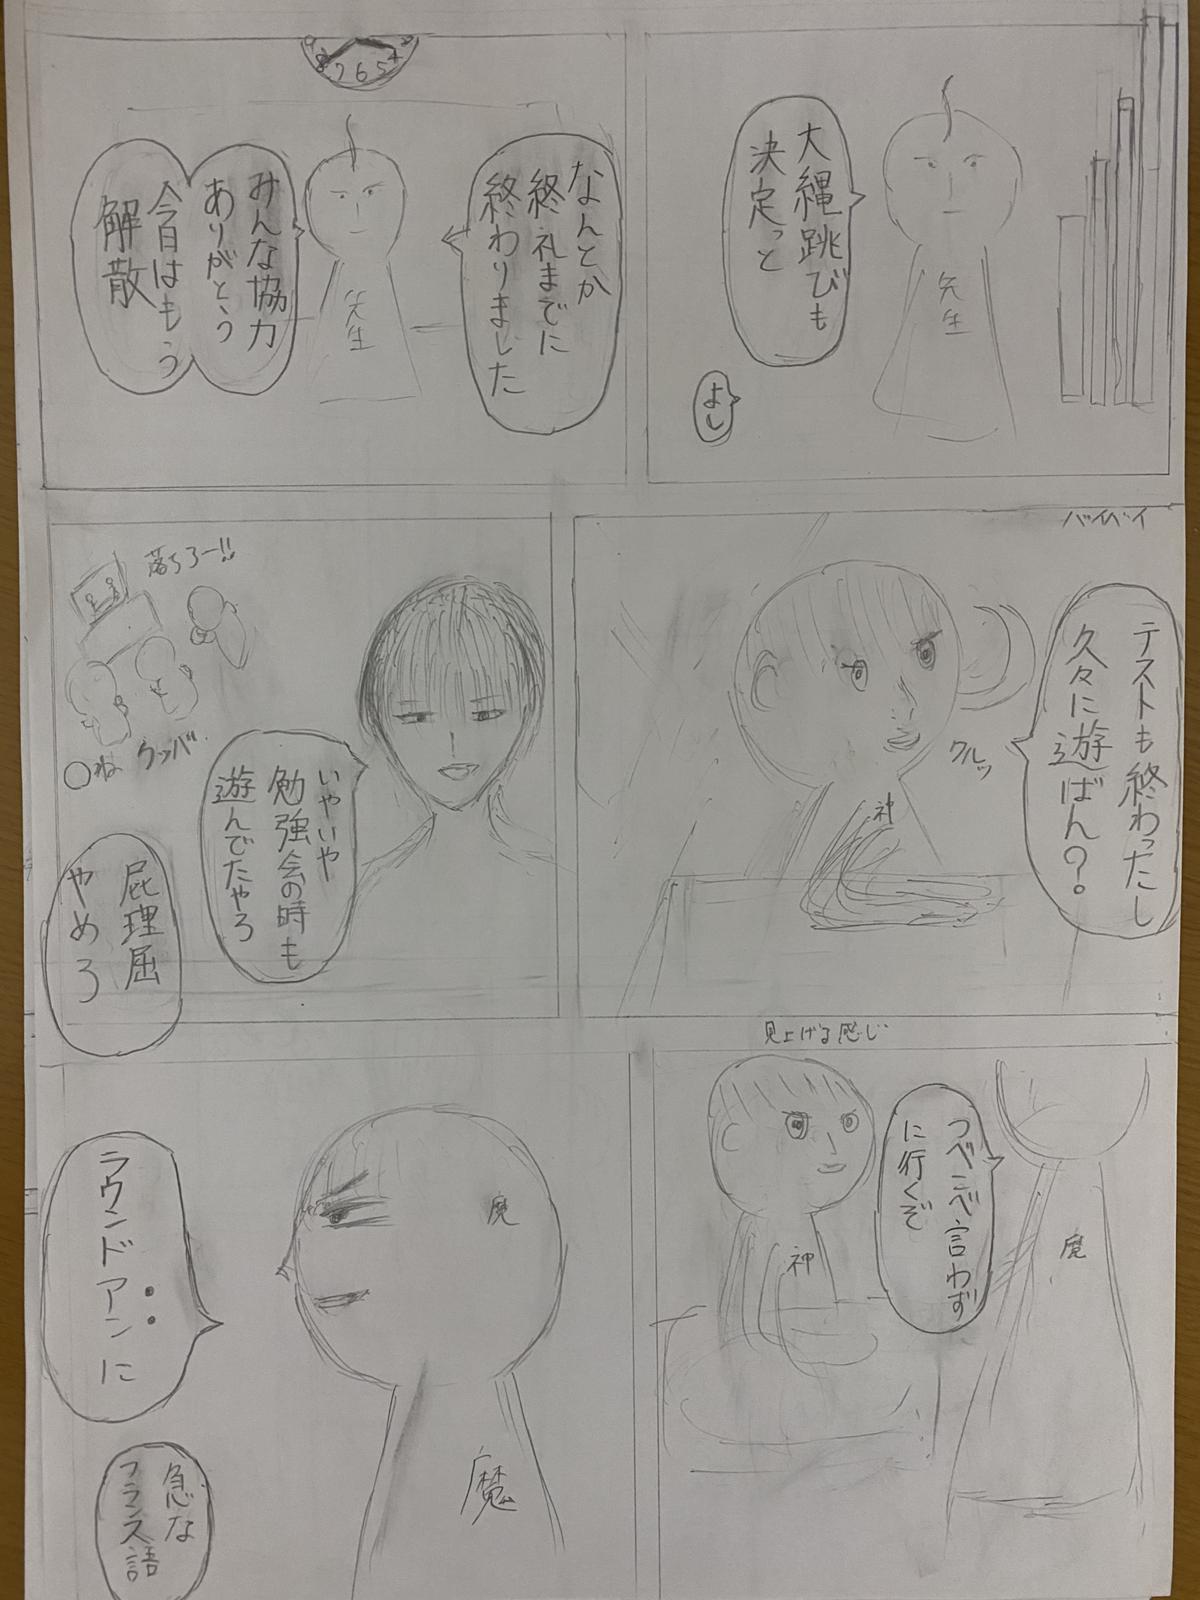 大縄跳びも
決定っと
よし
先生
なんとか
終礼までに
終わりました
8 7 6 5 4
先生
みんな協力
ありがとう
今日はもう
解散
バイバイ
テストも終わったし
久々に遊ばん?
クルッ
神
落ちろー!!
いやいや
勉強会の時も
遊んでたやろ
〇ね
クッパ
屁理屈
やめろ
見上げる感じ
魔
つべこべ言わず
に行くぞ
神
魔
魔
ラウンドアンに
急な
フランス語